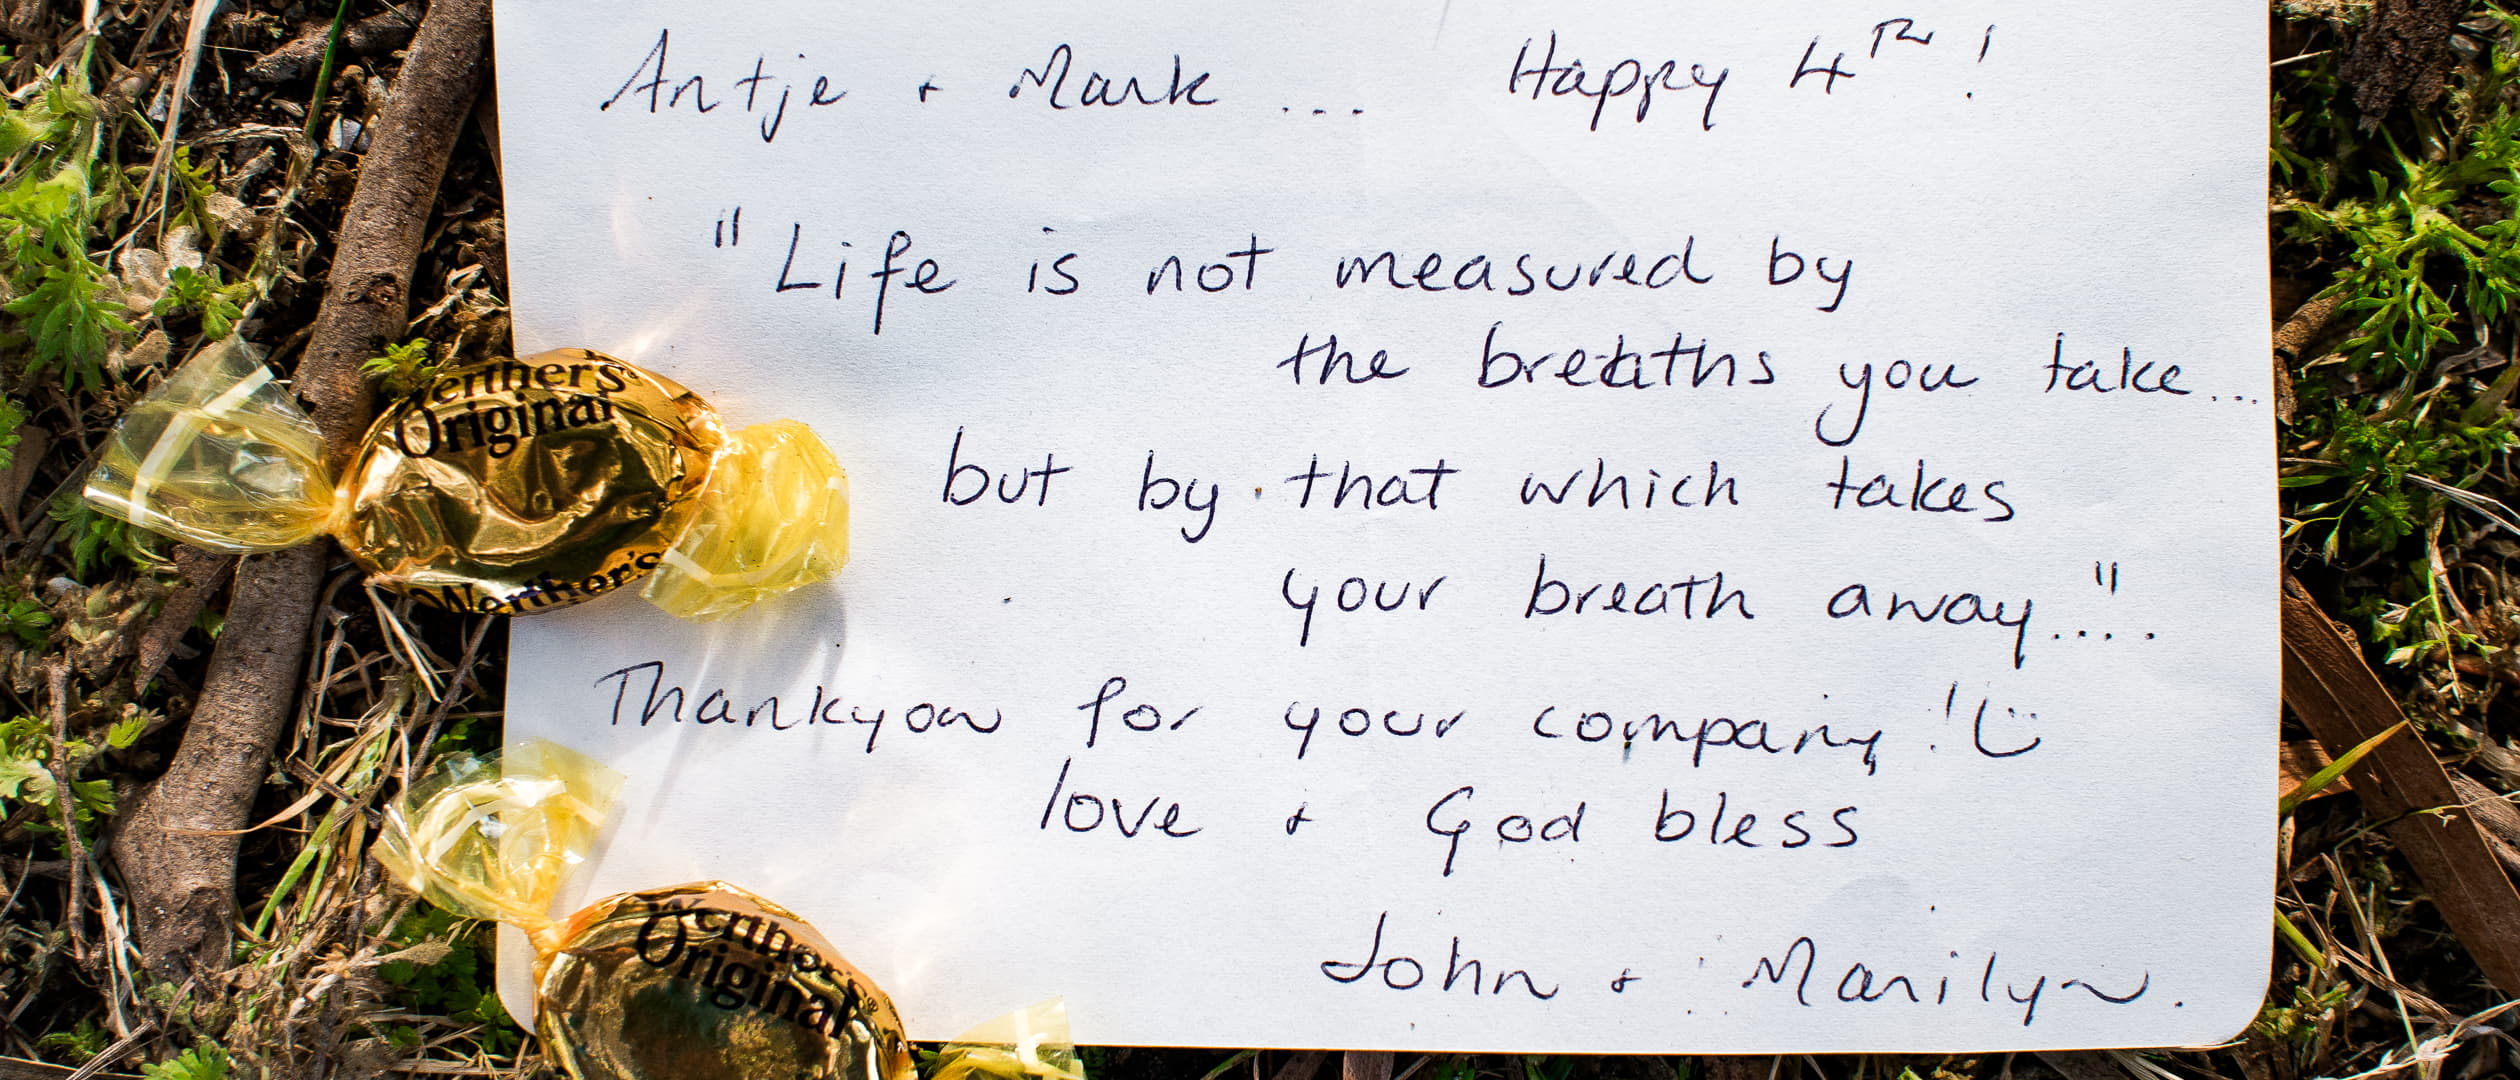 Antje + Mark ... Happy 4TH !
"Life is not measured by
the breaths you take...
but by that which takes
your breath away...."
Thankyou for your company! :)
love + God bless
John + Marilyn.
Werther's
Original
Werther's
Werther's®
Original